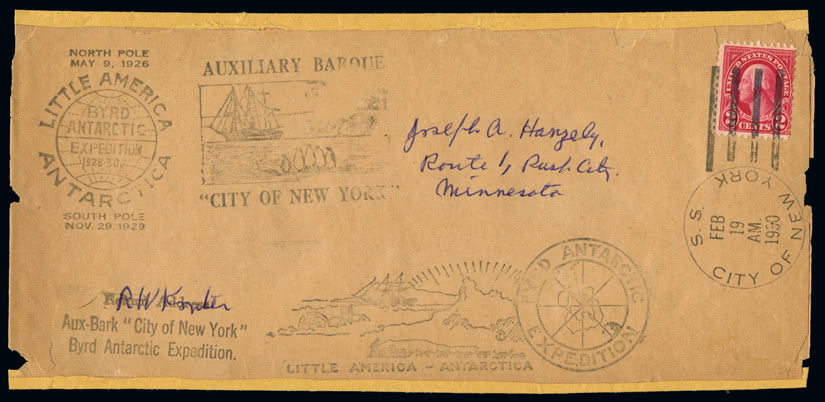 NORTH POLE
MAY 9, 1926
LITTLE AMERICA
BYRD
ANTARCTIC
EXPEDITION
1928-30
ANTARCTICA
SOUTH POLE
NOV. 29 1929
AUXILIARY BARQUE
"CITY OF NEW YORK"
UNITED STATES POSTAGE
2 CENTS 2
Joseph A. Hanzely,
Route 1, Rush City.
Minnesota
S.S. CITY OF NEW YORK
FEB
19
AM.
1930
Return Address
R W
Aux-Bark "City of New York"
Byrd Antarctic Expedition.
LITTLE AMERICA - ANTARCTICA
BYRD ANTARCTIC
EXPEDITION